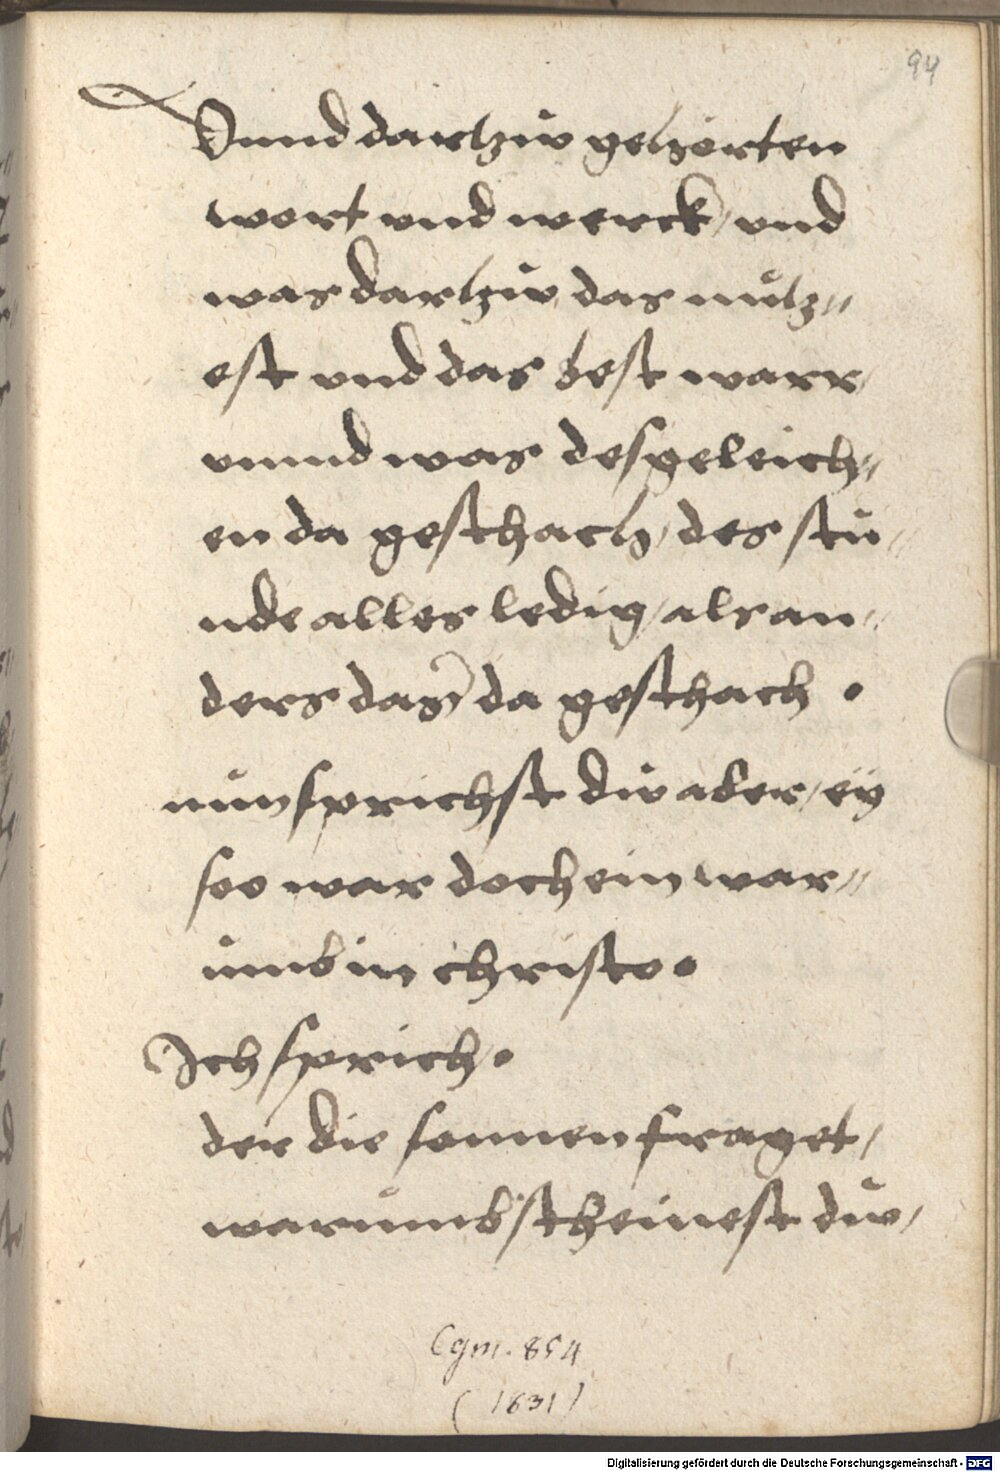 94
Vnnd dartzuͦ gehörten
wort vnd werck / vnd
was dartzuͦ das nuͤtz //
est vnd das best warr /
vnnd was desgeleich //
en da geschach / des stuͦ //
nde alles ledig / als an //
ders das da geschach •
nuͦn sprichst duͦ aber / ey
soo war doch ein war //
uͦmb in christo •
Ich sprich •
der die sonnen fraget /
waruͦmb scheinest duͦ /
Cgm. 854
(1631)
Digitalisierung gefördert durch die Deutsche Forschungsgemeinschaft - DFG